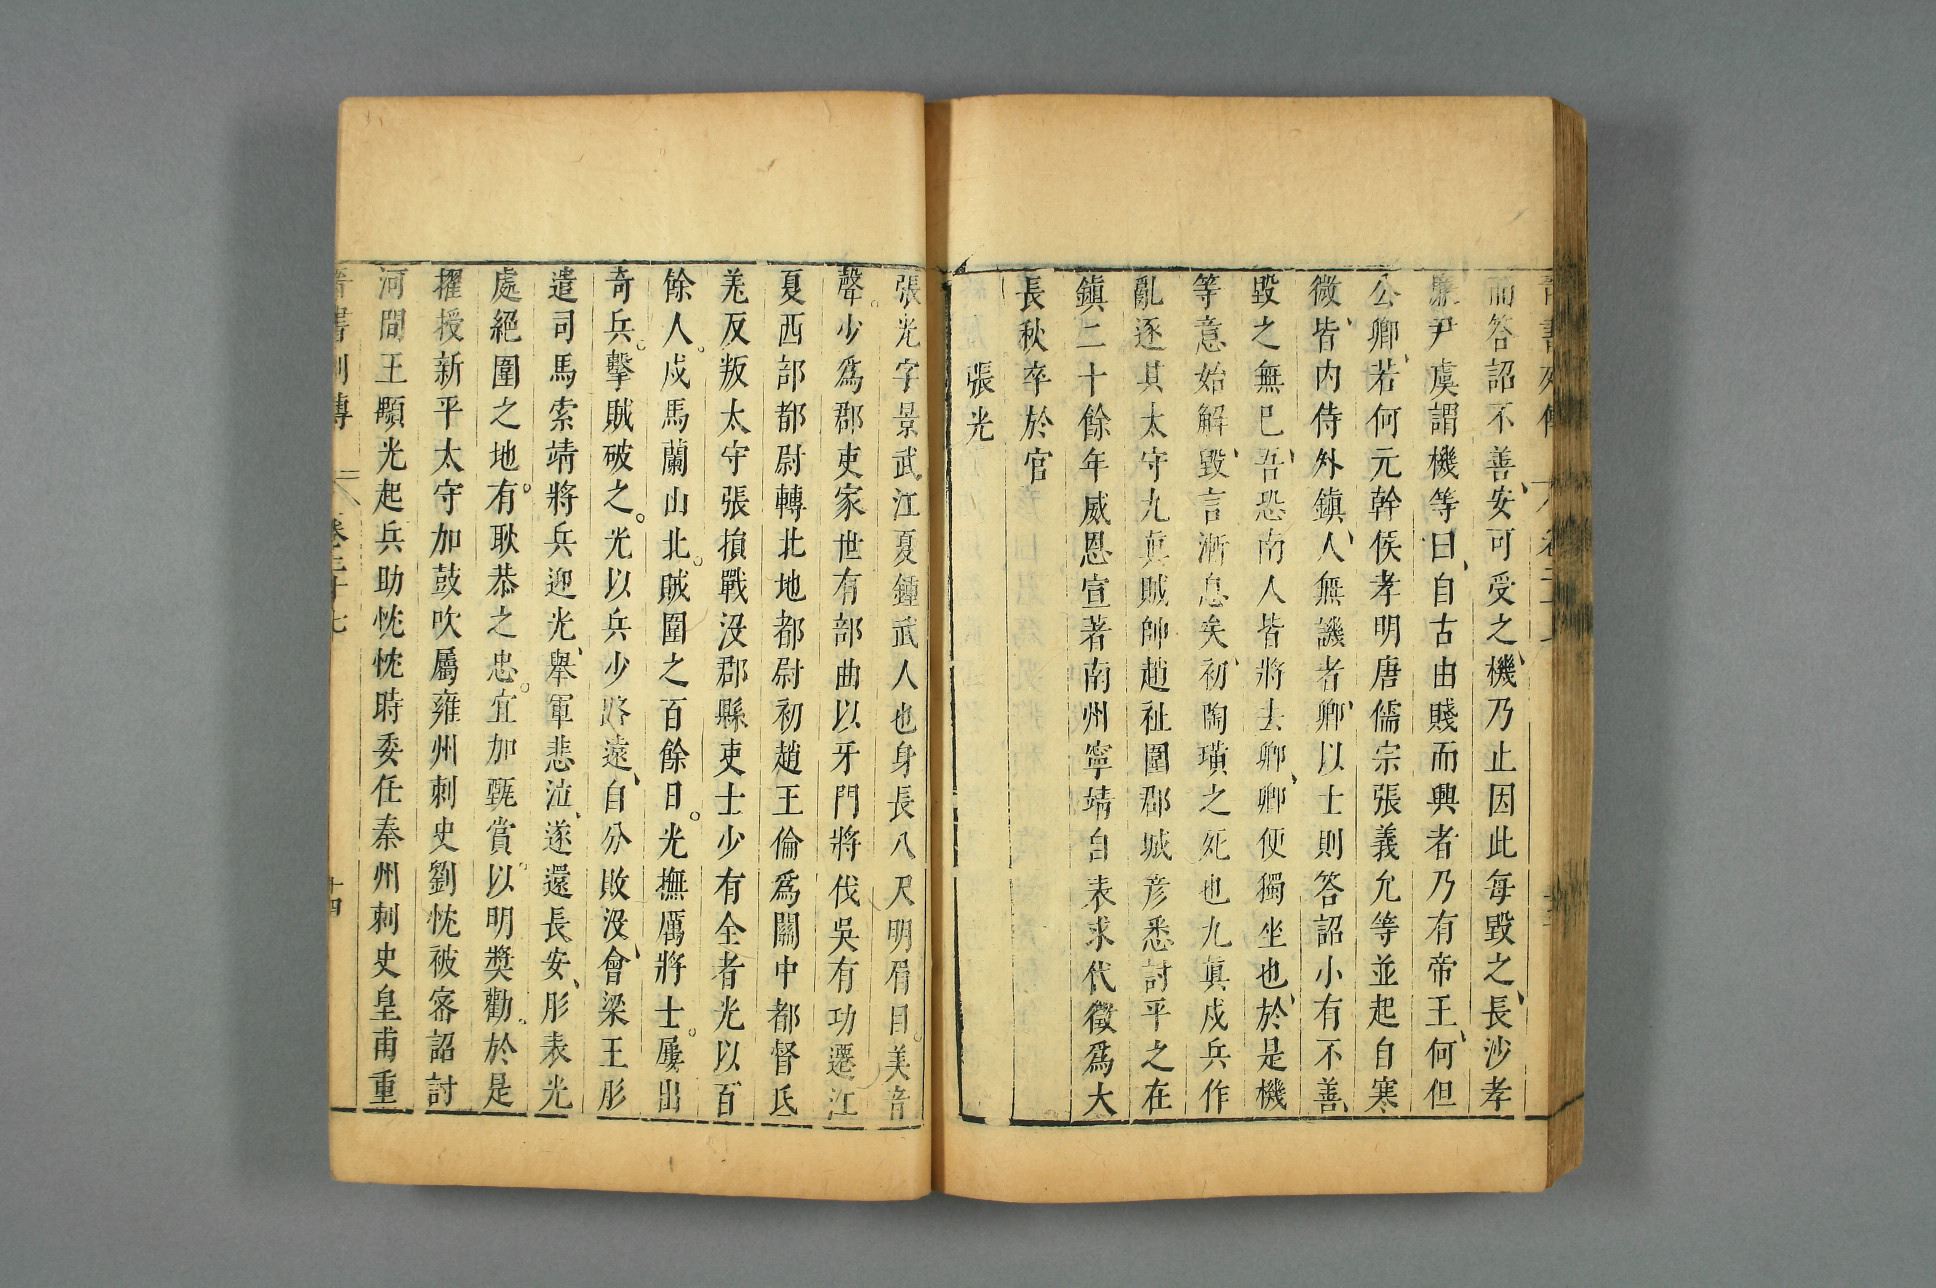 而答詔不善、安可受之、機乃止因此每毀之、長沙孝
廉尹虞謂機等曰、自古由賤而興者乃有帝王、何但
公卿、若何元幹侯孝明唐儒宗張義允等並起自寒
微、皆内侍外鎮、人無譏者、卿以士則答詔小有不善、
毀之無巳、吾恐南人皆將去卿、卿便獨坐也、於是機
等意始解、毀言漸息矣、初、陶璜之死也九眞戍兵作
亂逐其太守九眞賊帥趙祉圍郡城彦悉討平之在
鎮二十餘年威恩宣著南州寧靖自表求代徵爲大
長秋卒於官
張光
張光字景武江夏鍾武人也身長八尺明眉目。美音
聲。少爲郡吏家世有部曲以牙門將伐吳有功遷江
夏西部都尉轉北地都尉初趙王倫爲關中都督氐
羌反叛太守張損戰沒郡縣吏士少有全者光以百
餘人。戍馬蘭山北。賊圍之百餘日。光撫厲將士。屢出
奇兵。擊賊破之。光以兵少路遠、自分敗沒、會梁王肜
遣司馬索靖將兵迎光、舉軍悲泣、遂還長安、肜表光
處絕圍之地。有耿恭之忠。宜加甄賞。以明獎勸。於是
擢授新平太守加鼓吹屬雍州刺史劉忱被密詔討
河間王顒光起兵助忱忱時委任秦州刺史皇甫重
晉書列傳 卷二十七 十四